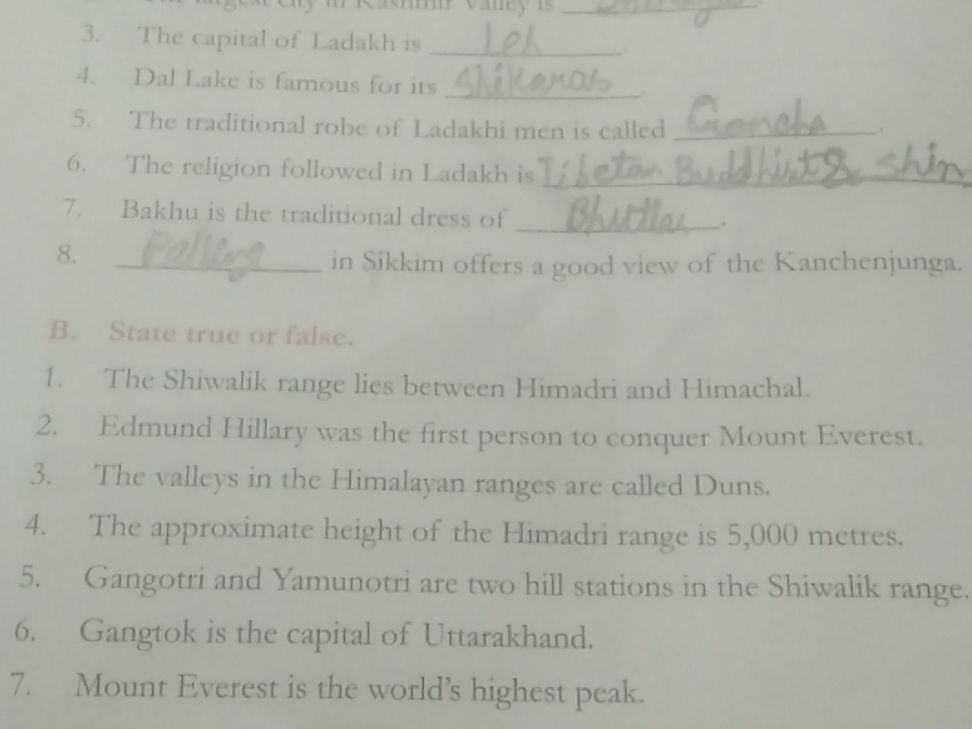 The largest city in Kashmir Valley is
3. The capital of Ladakh is Leh
4. Dal Lake is famous for its Shikaras.
5. The traditional robe of Ladakhi men is called Goncha.
6. The religion followed in Ladakh is Tibetan Buddhist &
7. Bakhu is the traditional dress of Bhutias.
8. Pelling in Sikkim offers a good view of the Kanchenjunga.
B. State true or false.
1. The Shiwalik range lies between Himadri and Himachal.
2. Edmund Hillary was the first person to conquer Mount Everest.
3. The valleys in the Himalayan ranges are called Duns.
4. The approximate height of the Himadri range is 5,000 metres.
5. Gangotri and Yamunotri are two hill stations in the Shiwalik range.
6. Gangtok is the capital of Uttarakhand.
7. Mount Everest is the world's highest peak.